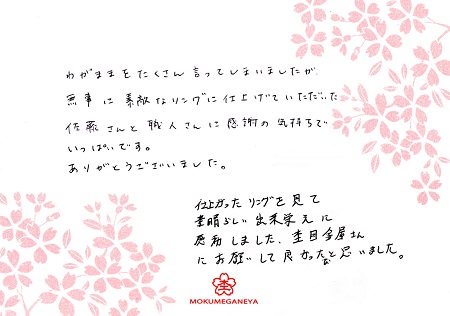 わがままをたくさん言ってしまいましたが、
無事に素敵なリングに仕上げていただいた
佐藤さんと職人さんに感謝の気持ちで
いっぱいです。
ありがとうございました。
仕上がったリングを見て
素晴らしい出来栄えに
感動しました。杢目金屋さん
にお願いして良かったなと思いました。
MOKUMEGANEYA